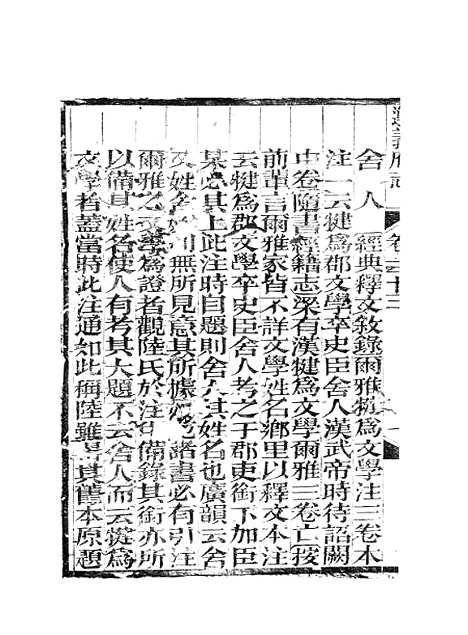 舍人
經典釋文敘錄爾雅犍爲文學注三卷本
注一云犍爲郡文學卒史臣舍人漢武帝時待詔闕
中卷隨書經籍志梁有漢犍爲文學爾雅三卷亡按
前輩言爾雅家皆不詳文學姓名鄉里以釋文本注
云犍爲郡文學卒史臣舍人考之于郡吏銜下加臣
某必其上此注時自題則舍人其姓名也廣韻云舍
又姓無所見意其所據諸書必有引注
爾雅之文爲證者觀陸氏於注備錄其銜亦所
以備其姓名使人有考其大題不云舍人而云犍爲
文學者蓋當時此注通如此稱陸雖其舊本原題